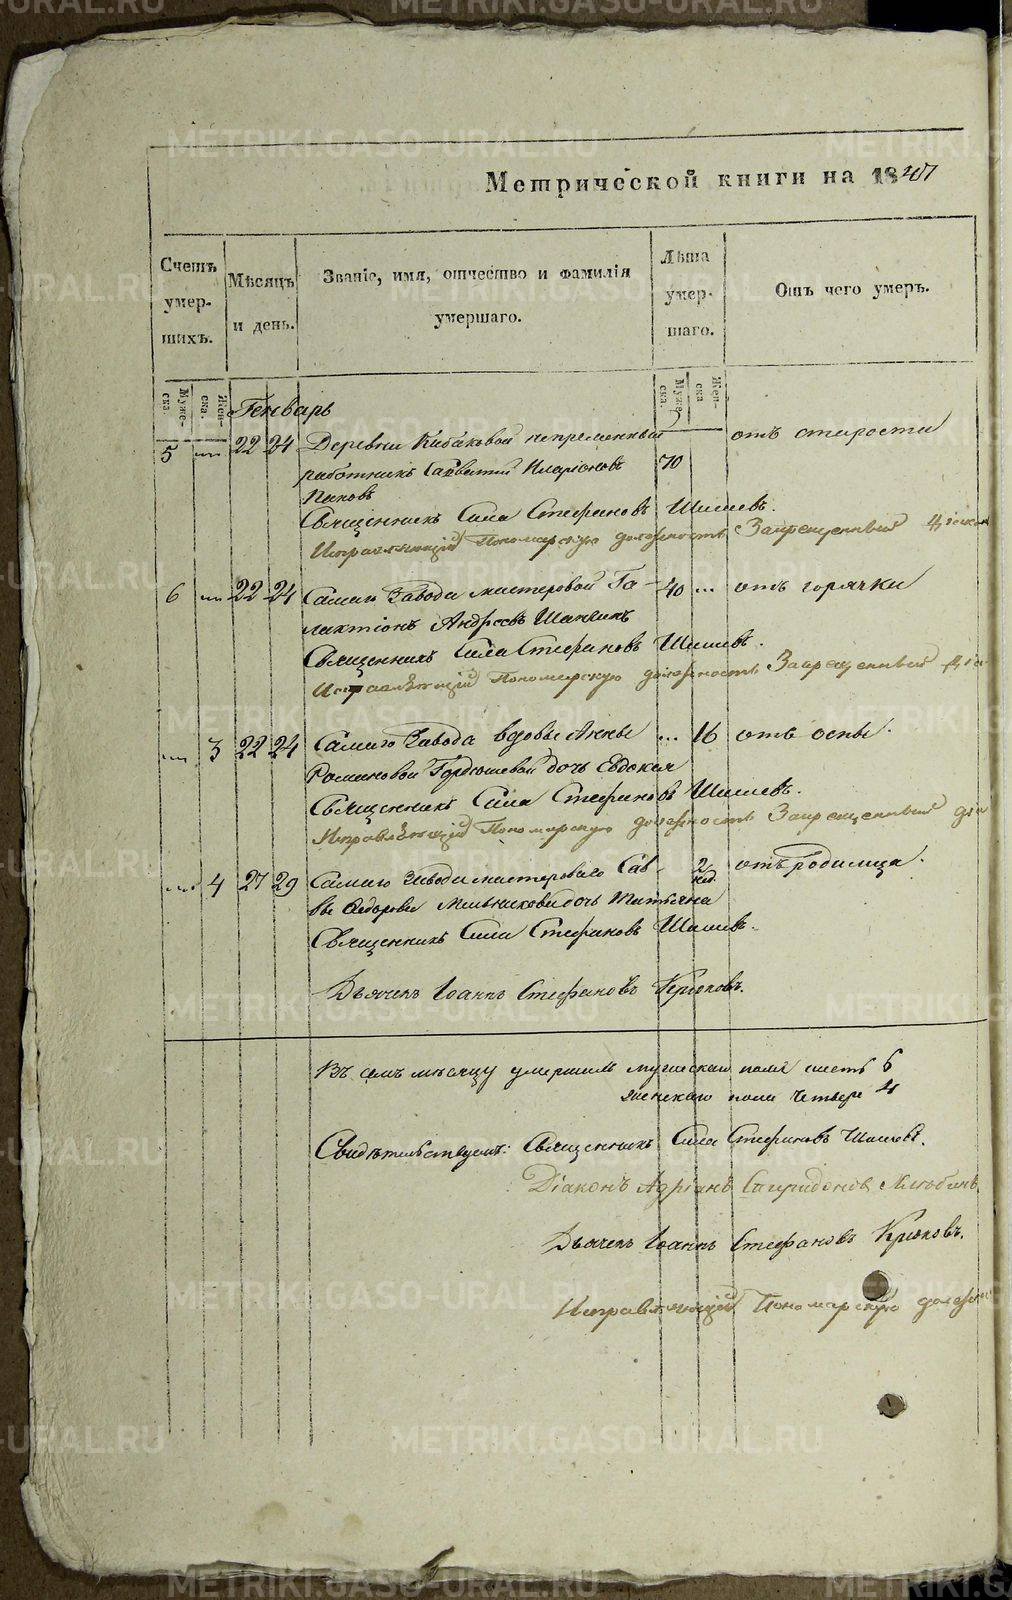 Метрической книги на 1847
Счетъ умер- шихъ.
Мѣсяцъ и день.
Званіе, имя, отчество и фамилія умершаго.
Лѣта умер- шаго.
Отъ чего умеръ.
Муже- ска.
Жен- ска.
Муже- ска.
Жен- ска
Генварь
5 22 24 Деревни Кабаковой непременный отъ старости
работникъ Савватий Иларіоновъ 70
Пановъ
Священникъ Сила Стефановъ Шишевъ.
Исправляющій Пономарскую должность Запрещенный Діакон
6 22 24 Самаго Завода мастеровой Га- 40 ... отъ горячки
лактіонъ Андреевъ
Священникъ Сила Стефановъ Шишевъ.
Исправляющій Пономарскую должность Запрещенный Діа
3 22 24 Самаго Завода вдовы Анны ... 16 отъ оспы.
Романовой Гордюшевой дочь Евдокия
Священникъ Сила Стефановъ Шишевъ.
Исправляющій Пономарскую должность Запрещенный діа
4 27 29 Самаго Завода мастероваго Сав- 2 нед отъ родимца.
вы Федорова Мельникова дочь Татьяна
Священникъ Сила Стефановъ Шишевъ.
Дьячекъ Іоаннъ Стефановъ Крюковъ.
Въ семъ месяцу умершихъ мужескаго пола шесть 6
женскаго пола Четыре 4
Свидѣтельствуемъ: Священникъ Сила Стефановъ Шишевъ.
Діаконъ Адріанъ Спиридоновъ
Дьячекъ Іоаннъ Стефановъ Крюковъ.
Исправляющій Пономарскую должно
METRIKI.GASO-URAL.RU